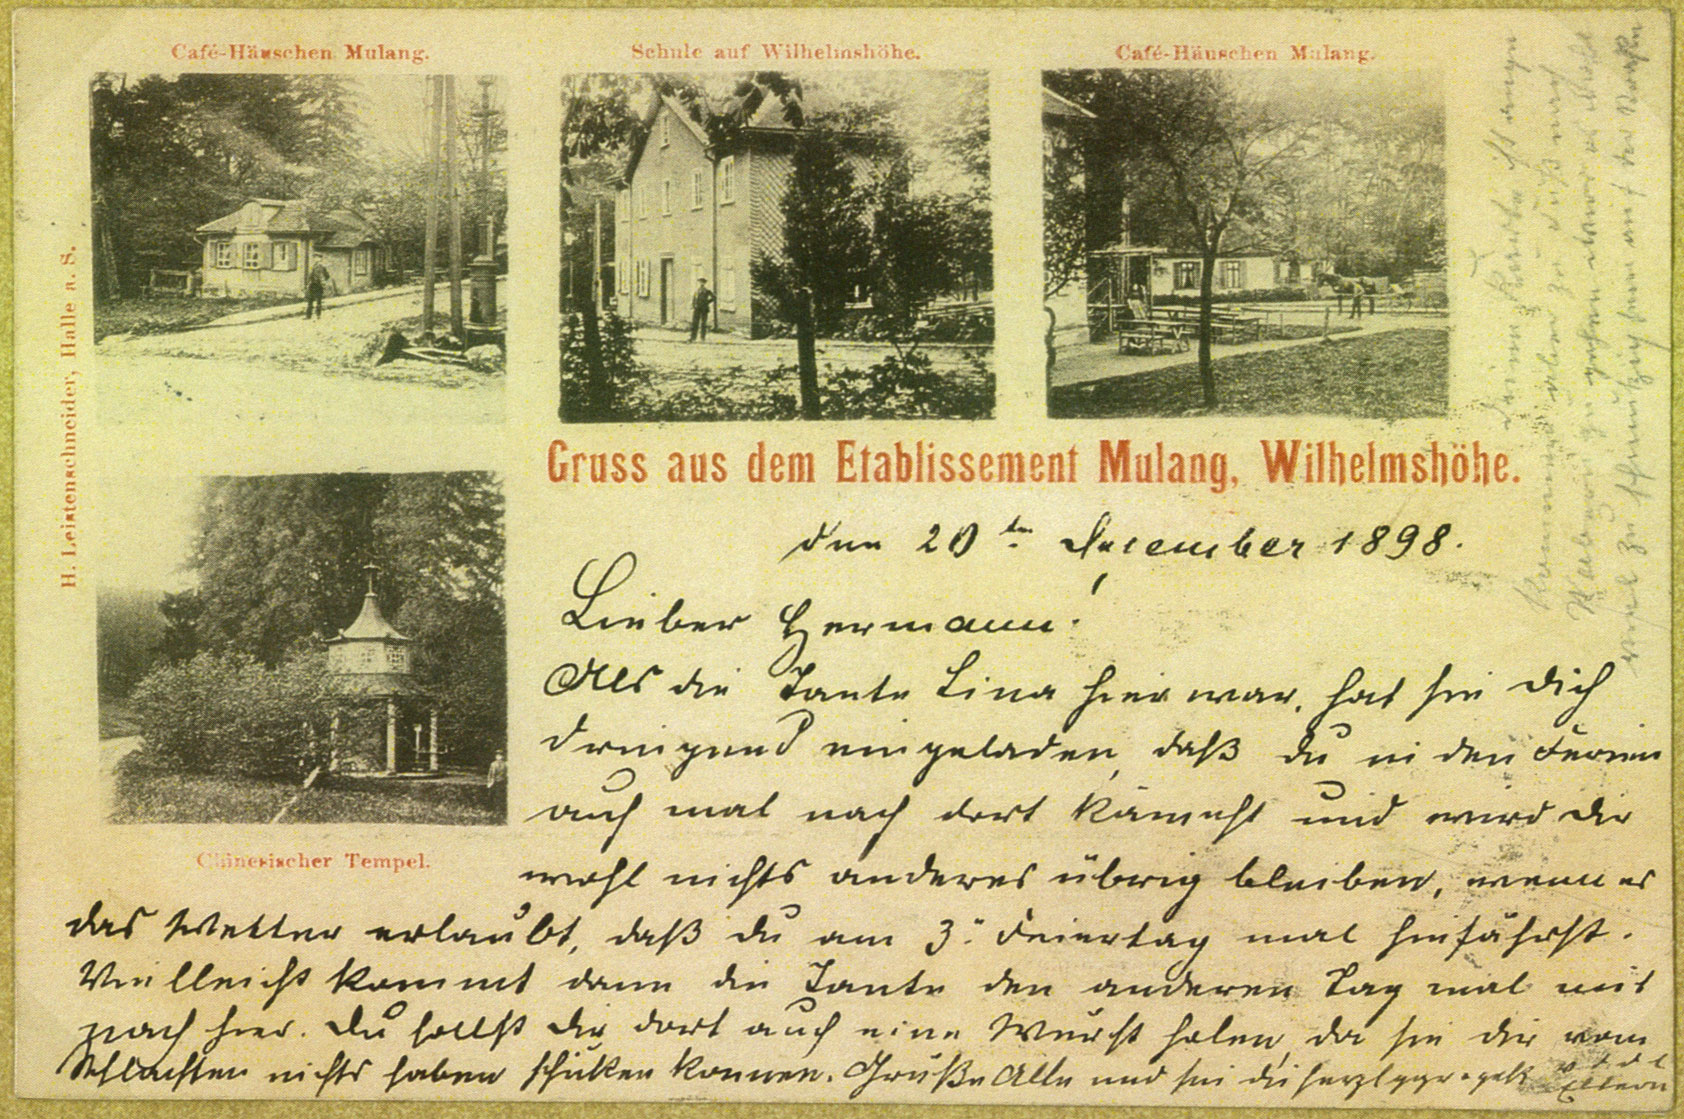 Café-Häuschen Mulang.
Schule auf Wilhelmshöhe.
Café-Häuschen Mulang.
H. Leistenschneider, Halle a. S.
Gruss aus dem Etablissement Mulang, Wilhelmshöhe.
Chinesischer Tempel.
den 20ten Dezember 1898.
Lieber Hermann!
Als die Tante Lina hier war, hat sie Dich
dringend eingeladen, daß Du in den Ferien
auch mal nach dort kämest und wird Dir
wohl nichts anderes übrig bleiben, wenn es
das Wetter erlaubt, daß Du am 3. Feiertag mal hinfährst.
Vielleicht kommt dann die Tante den anderen Tag mal mit
nach hier. Du sollst Dir dort auch eine Wurst holen, da sie Dir vom
Schlachten nichts haben schicken können. Grüße Alle und sei Du herzl. gegrüßt v. d. l. Eltern
Deine Karte ist angekommen
zu